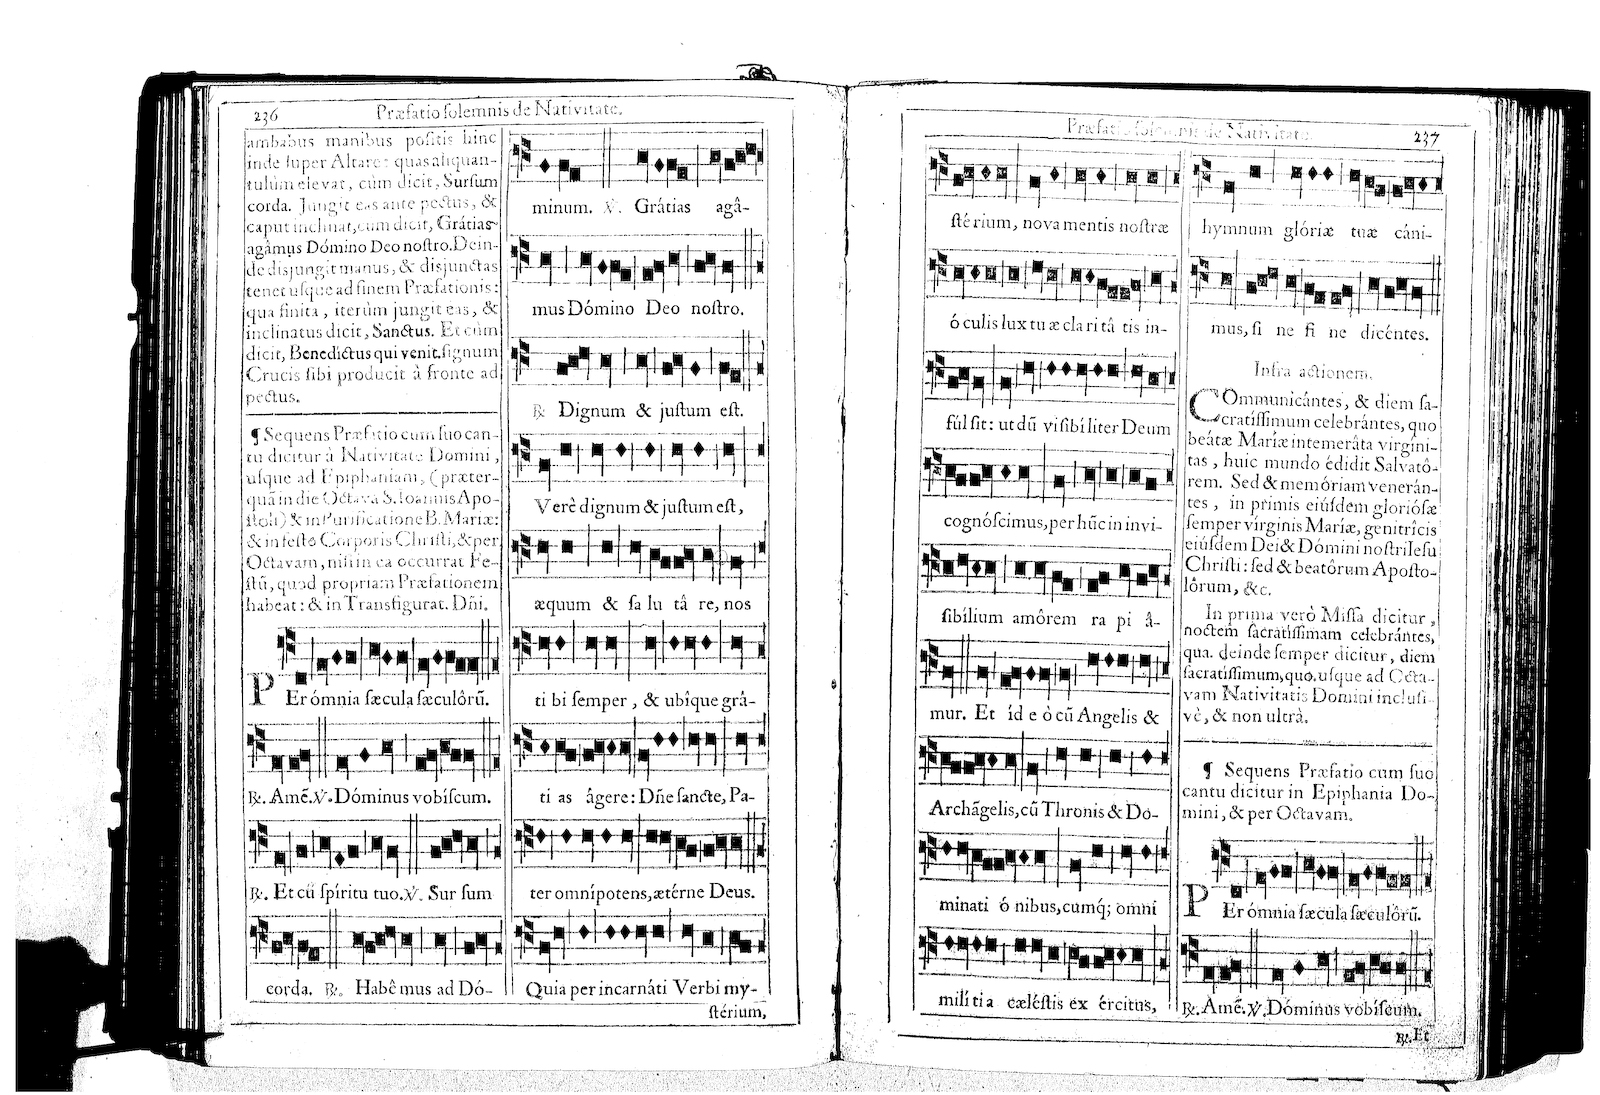 236 Præfatio solemnis de Nativitate.
ambabus manibus positis hinc
inde super Altare: quas aliquan-
tulùm elevat, cùm dicit, Sursum
corda. Jungit eas ante pectus, &
caput inclinat, cum dicit, Grátias
agâmus Dómino Deo nostro. Dein-
de disjungit manus, & disjunctas
tenet usque ad finem Præfationis:
qua finita, iterùm jungit eas, &
inclinatus dicit, Sanctus. Et cùm
dicit, Benedictus qui venit. signum
Crucis sibi producit à fronte ad
pectus.
¶ Sequens Præfatio cum suo can-
tu dicitur à Nativitate Domini,
usque ad Epiphaniam, (præter-
quã in die Octava S. Ioannis Apo-
stoli) & in Purificatione B. Mariæ:
& in festo Corporis Christi, & per
Octavam, nisi in ea occurrat Fe-
stũ, quod propriam Præfationem
habeat: & in Transfigurat. Dñi.
PEr ómnia sæcula sæculôrũ.
℟. Amẽ. ℣. Dóminus vobíscum.
℟. Et cũ spíritu tuo. ℣. Sur sum
corda. ℟. Habê mus ad Dó-
minum. ℣. Grátias agâ-
mus Dómino Deo nostro.
℟. Dignum & justum est.
Verè dignum & justum est,
æquum & sa lu tâ re, nos
ti bi semper, & ubíque grâ-
ti as ágere: Dñe sancte, Pa-
ter omnípotens, ætérne Deus.
Quia per incarnáti Verbi my-
stérium,
Præfatio solemnis de Nativitate. 237
sté rium, nova mentis nostræ
ó culis lux tu æ cla ri tâ tis in-
fúl sit: ut dũ visibíliter Deum
cognóscimus, per hũc in invi-
sibílium amôrem ra pi â-
mur. Et íd e ò cũ Angelis &
Archãgelis, cũ Thronis & Do-
minati ó nibus, cumq́; omni
milíti a cæléstis ex ércitus,
hymnum glóriæ tuæ cáni-
mus, si ne fi ne dicéntes.
Infra actionem.
COmmunicântes, & diem sa-
cratíssimum celebrántes, quo
beátæ Maríæ intemeráta virgíni-
tas, huic mundo édidit Salvatô-
rem. Sed & memóriam venerán-
tes, in primis eiúsdem gloriósæ
semper vírginis Maríæ, genitrícis
eiúsdem Dei & Dómini nostri Iesu
Christi: sed & beatôrum Aposto-
lôrum, &c.
In prima verò Missa dicitur,
noctem sacratíssimam celebrántes,
qua. deinde semper dicitur, diem
sacratíssimum, quo. usque ad Octa-
vam Nativitatis Domini inclusi-
vè, & non ultrà.
¶ Sequens Præfatio cum suo
cantu dicitur in Epiphania Do-
mini, & per Octavam.
PEr ómnia sæcula sæculôrũ.
℟. Amẽ. ℣. Dóminus vobíscum.
℟. Et